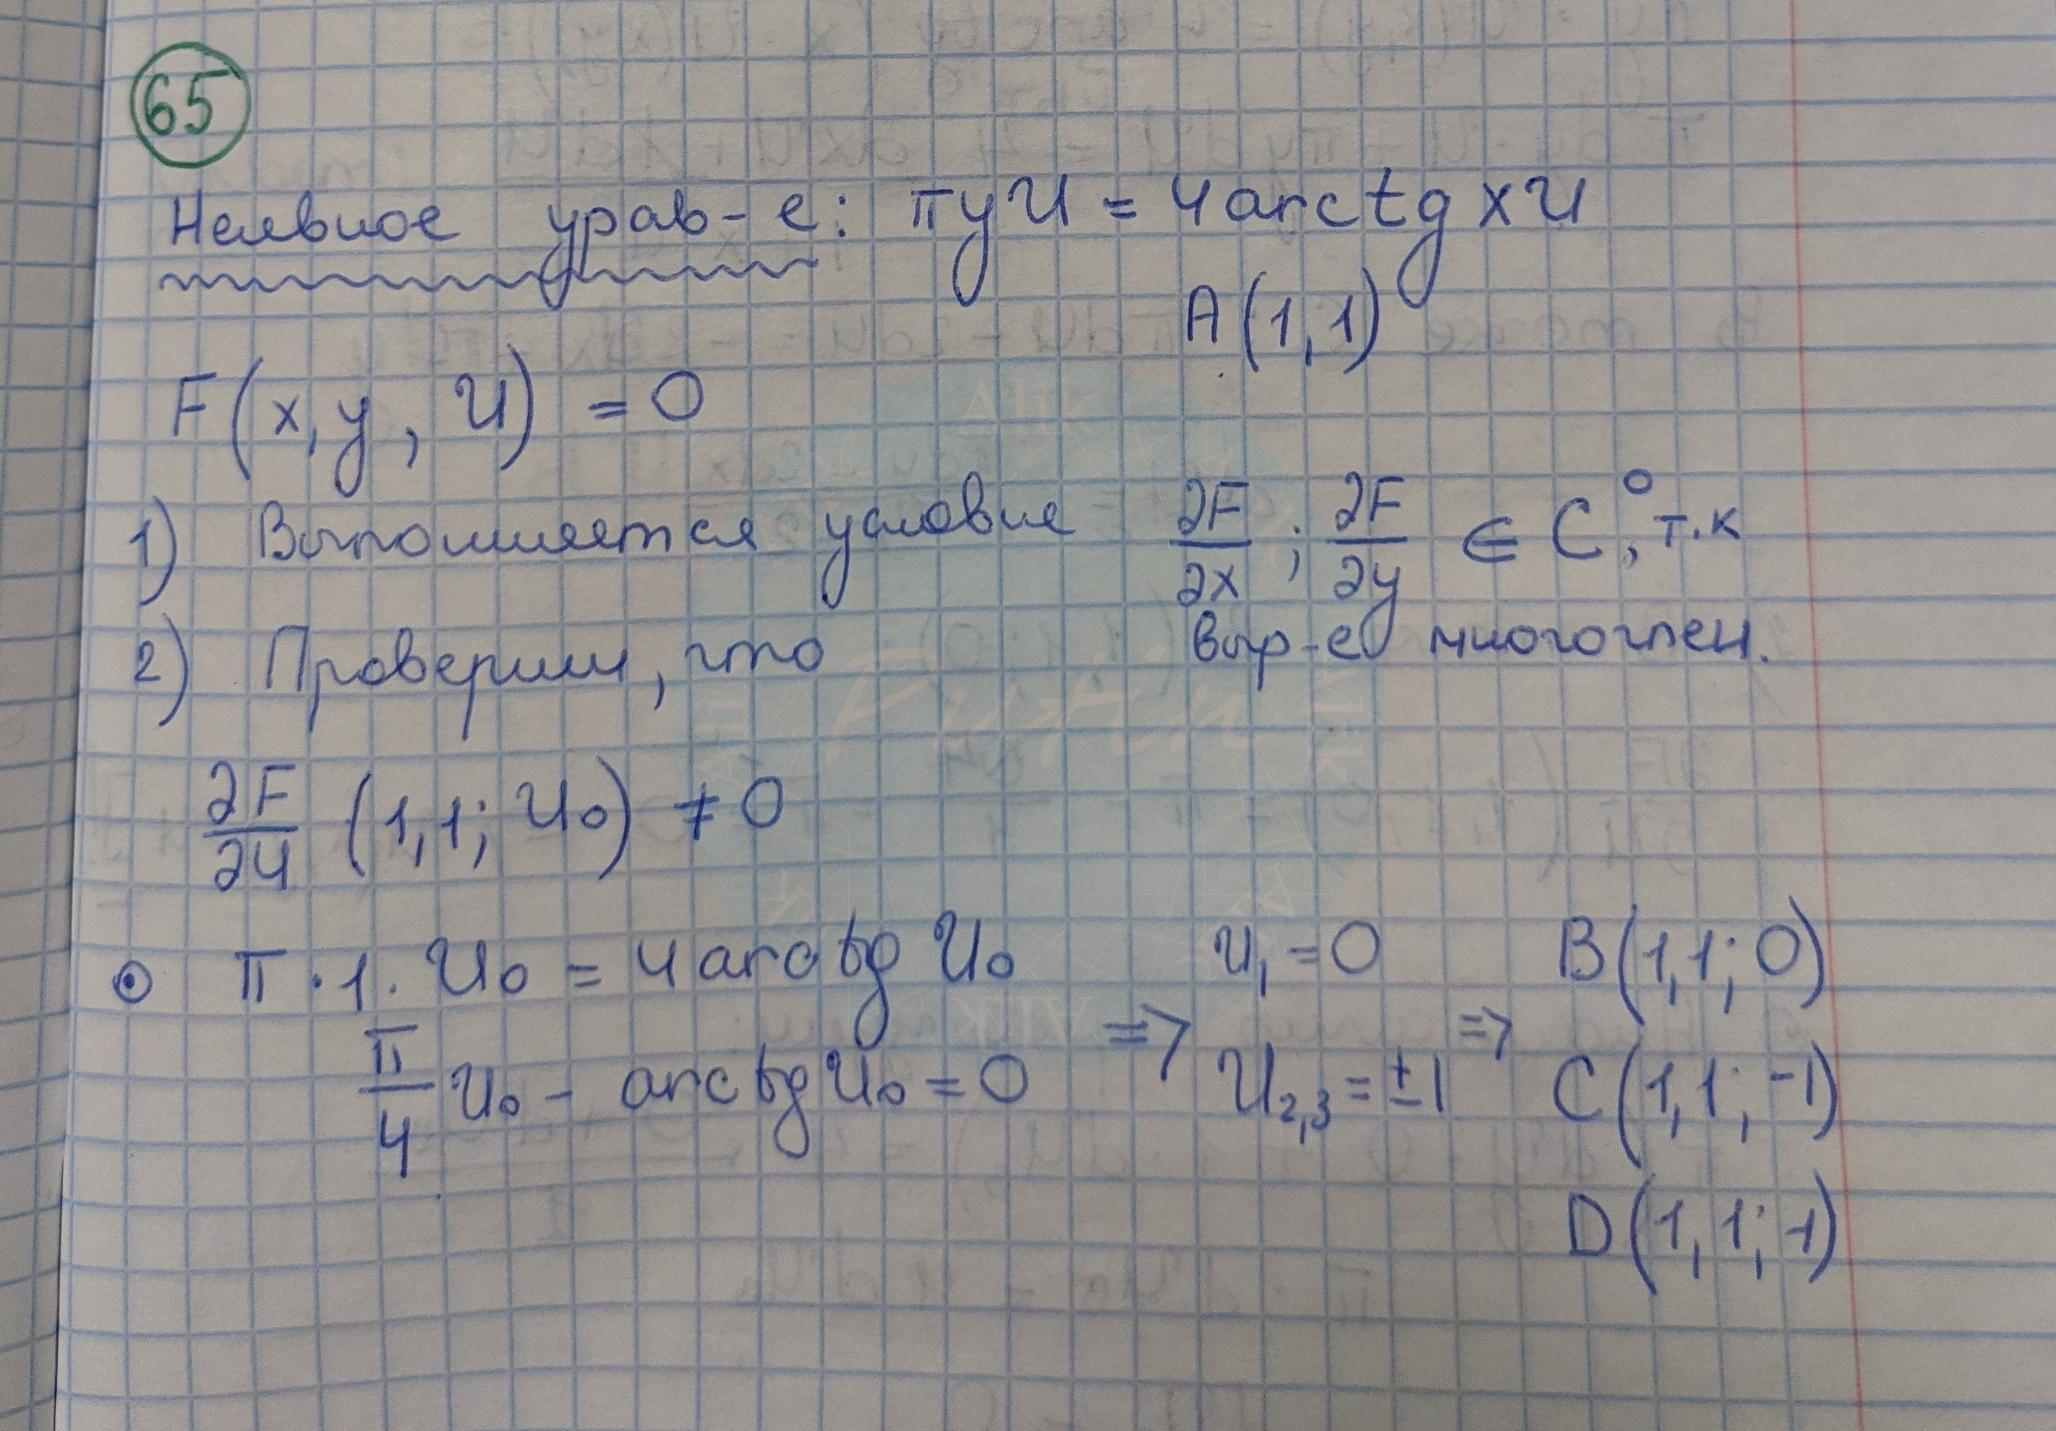 65
Неявное урав-е: πyU = 4arctg xU
A(1,1)
F(x,y,U) = 0
1) Выполняется условие ∂F/∂x ; ∂F/∂y ∈ C⁰, т.к
выр-е многочлен.
2) Проверим, что
∂F/∂U (1,1; U₀) ≠ 0
⊙ π·1·U₀ = 4arctg U₀
π/4 U₀ - arctg U₀ = 0 => U₁ = 0
U₂,₃ = ±1 => B(1,1; 0)
C(1,1; -1)
D(1,1; 1)